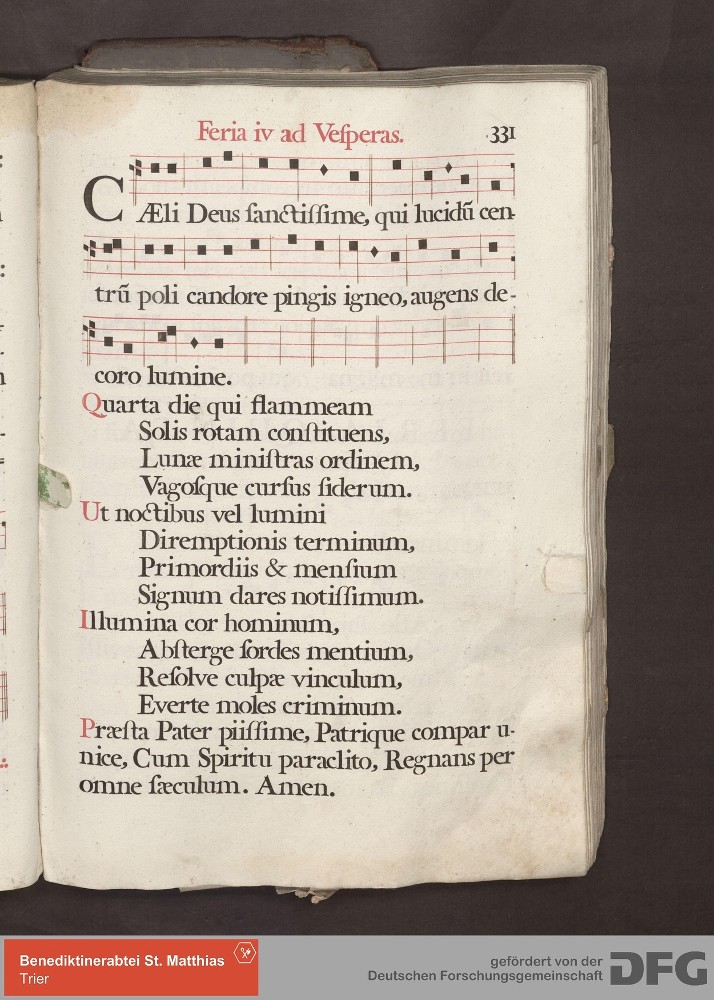 Feria iv ad Veſperas.
331
CÆli Deus ſanctiſſime, qui lucidū cen-
trū poli candore pingis igneo, augens de-
coro lumine.
Quarta die qui flammeam
Solis rotam conſtituens,
Lunæ miniſtras ordinem,
Vagoſque curſus ſiderum.
Ut noctibus vel lumini
Diremptionis terminum,
Primordiis & menſium
Signum dares notiſſimum.
Illumina cor hominum,
Abſterge ſordes mentium,
Reſolve culpæ vinculum,
Everte moles criminum.
Præſta Pater piiſſime, Patrique compar u-
nice, Cum Spiritu paraclito, Regnans per
omne ſæculum. Amen.
Benediktinerabtei St. Matthias
Trier
gefördert von der
Deutschen Forschungsgemeinschaft
DFG